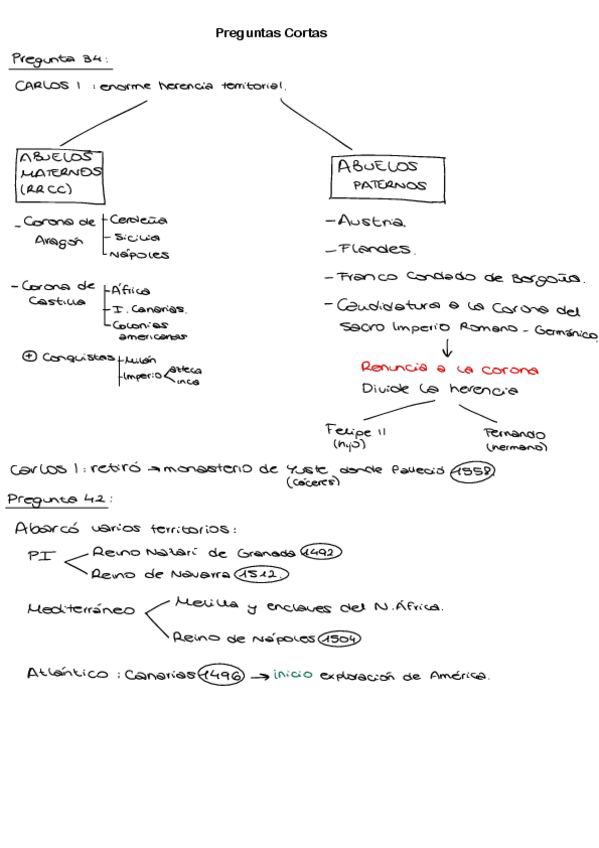 Preguntas Cortas
Pregunta 34:
CARLOS I : enorme herencia territorial.
ABUELOS MATERNOS (RRCC)
ABUELOS PATERNOS
- Corona de Aragón
- Cerdeña
- Sicilia
- Nápoles
- Corona de Castilla
- África
- I. Canarias.
- Colonias americanas
+ Conquistas
- Milán
- Imperio
azteca
inca
- Austria.
- Flandes.
- Franco Condado de Borgoña.
- Candidatura a la Corona del
Sacro Imperio Romano - Germánico.
Renuncia a la corona
Divide la herencia
Felipe II
(hijo)
Fernando
(hermano)
Carlos I: retiró → monasterio de Yuste donde falleció 1558.
(Cáceres)
Pregunta 42:
Abarcó varios territorios:
PI
Reino Nazarí de Granada 1492
Reino de Navarra 1512.
Mediterráneo
Melilla y enclaves del N. África.
Reino de Nápoles 1504
Atlántico : Canarias 1496 → inicio exploración de América.